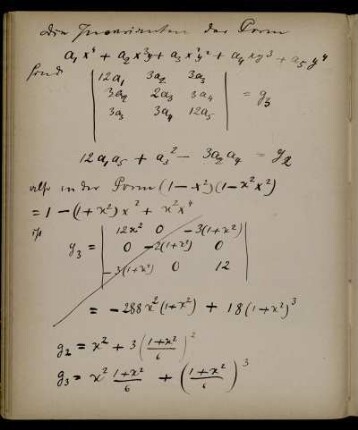 Die Invarianten der Form
a₁x⁴ + a₂x³y + a₃x²y² + a₄xy³ + a₅y⁴
sind
| 12a₁ 3a₂ 2a₃ |
| 3a₂ 2a₃ 3a₄ | = g₃
| 2a₃ 3a₄ 12a₅ |
12a₁a₅ + a₃² − 3a₂a₄ = g₂
also in der Form (1−x²)(1−κ²x²)
= 1 − (1+κ²)x² + κ²x⁴
ist
| 12κ² 0 −3(1+κ²) |
g₃ = | 0 −2(1+κ²) 0 |
| −3(1+κ²) 0 12 |
= −288κ²(1+κ²) + 18(1+κ²)³
g₂ = κ² + 3((1+κ²)/6)²
g₃ = κ² (1+κ²)/6 + ((1+κ²)/6)³